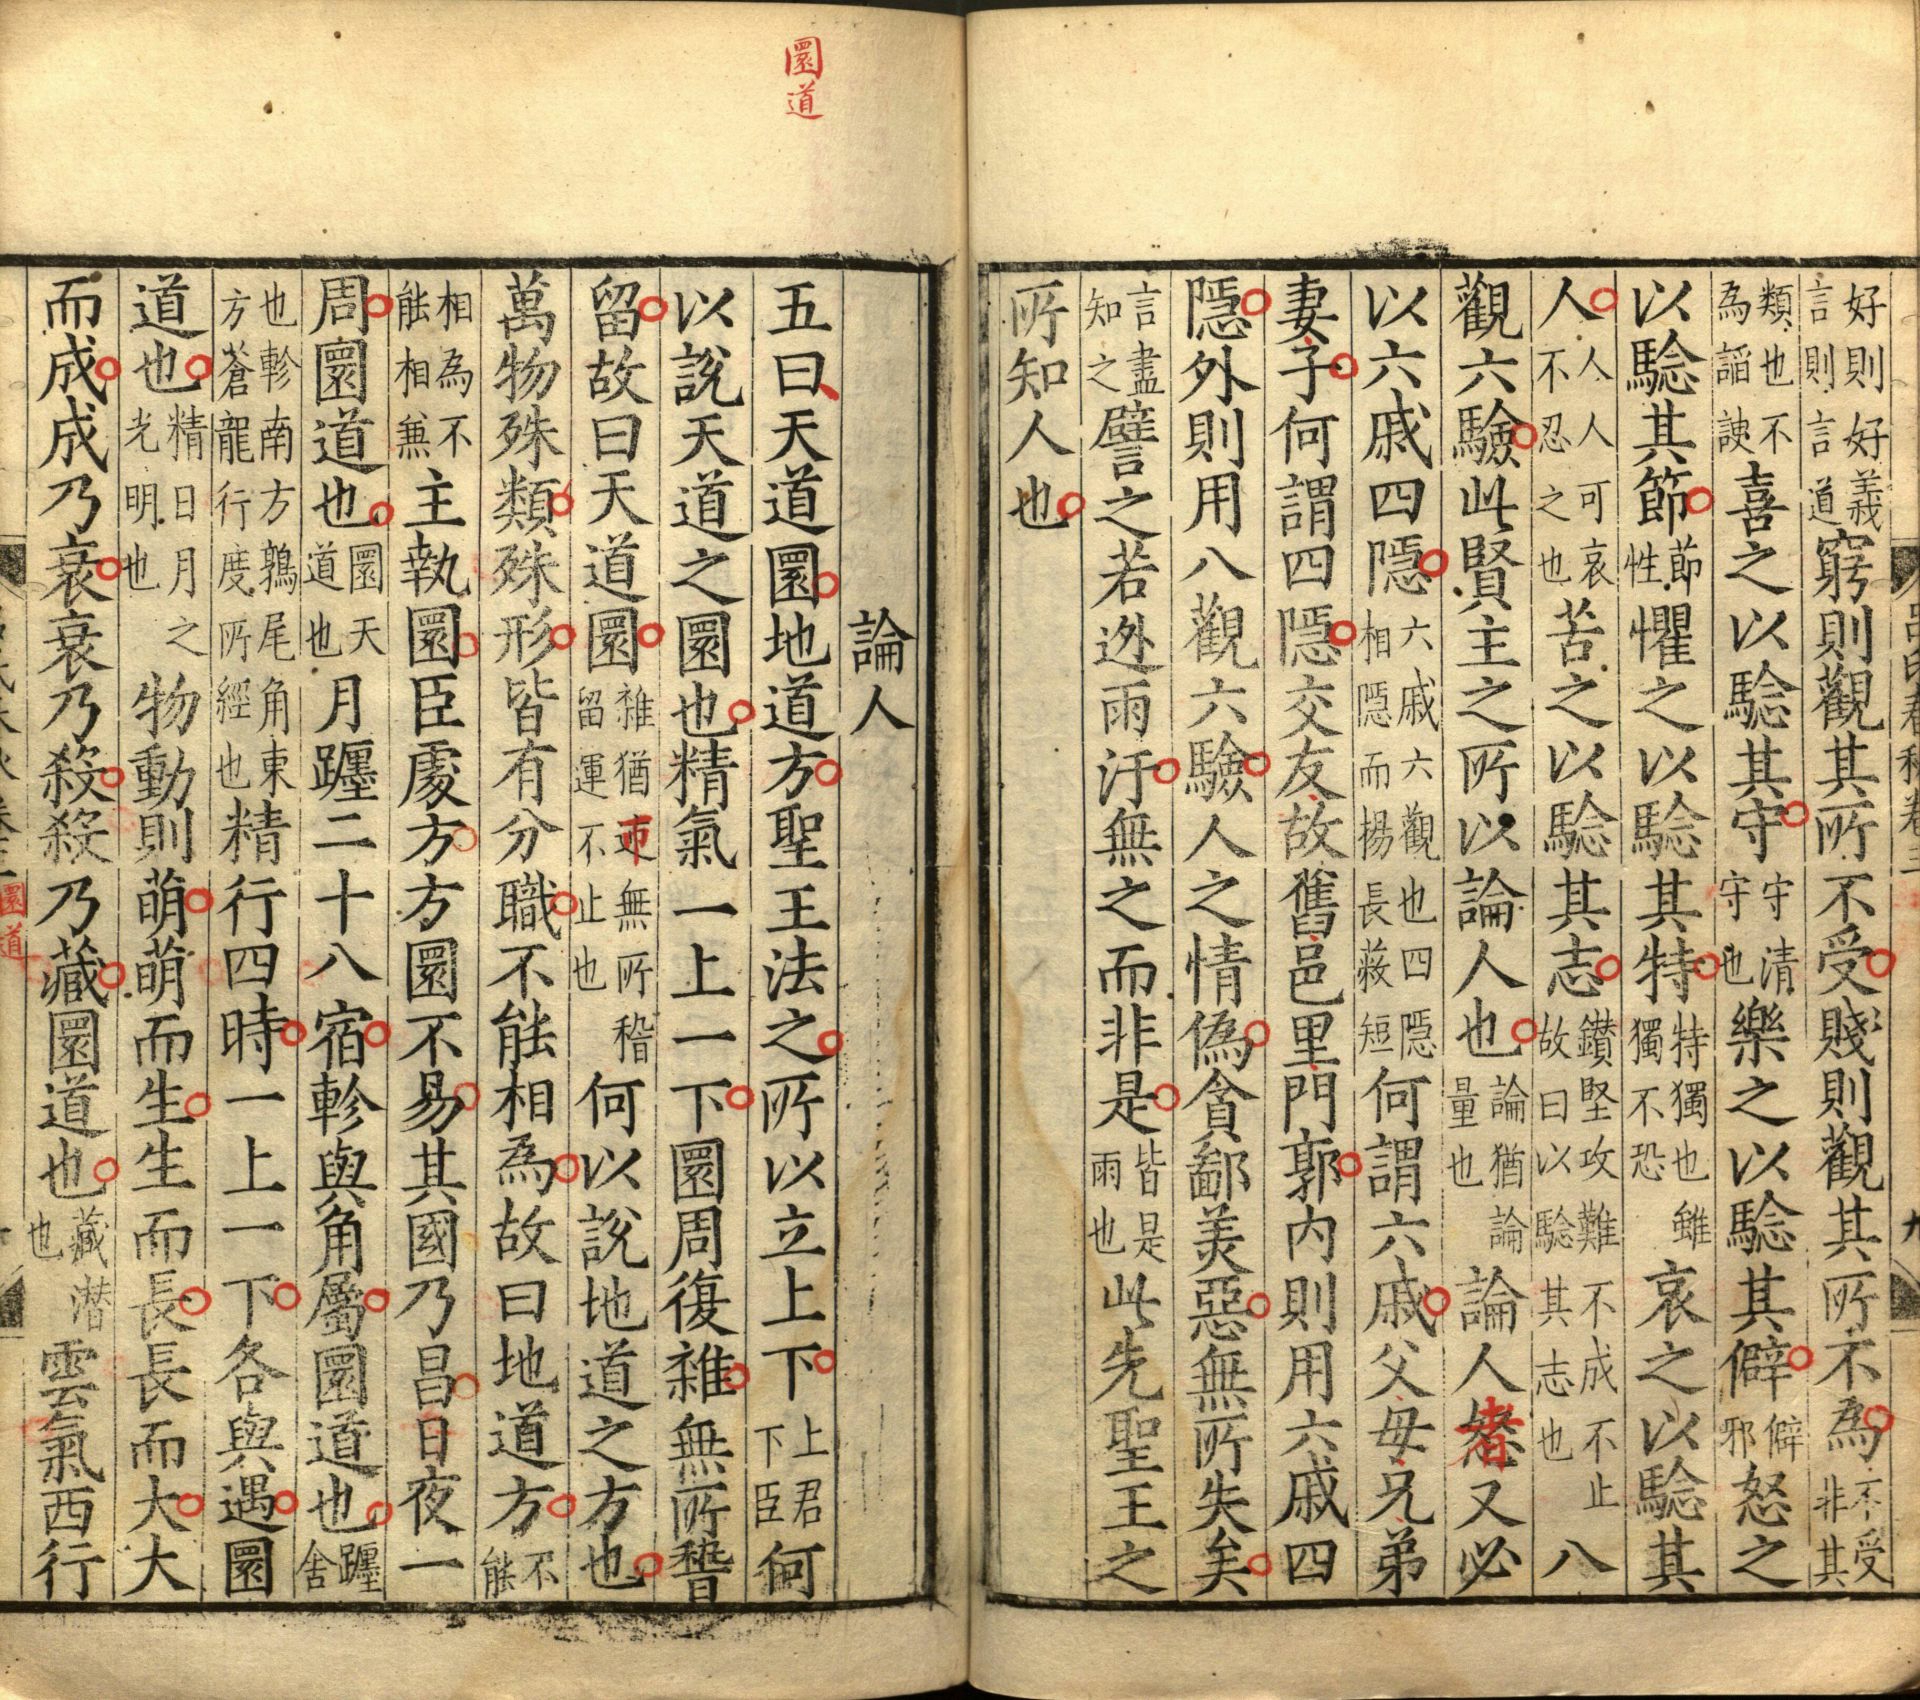 好則好義言則言道窮則觀其所不受賤則觀其所不為不受非其
類也不為謟諛喜之以騐其守守清守也樂之以騐其僻僻邪怒之
以騐其節節性懼之以騐其特特獨也雖獨不恐哀之以騐其
人人人可哀不忍之也苦之以騐其志鑚堅攻難不成不止故曰以騐其志也八
觀六驗此賢主之所以論人也論猶論量也論人者又必
以六戚四隱六戚六觀也四隱相隱而揚長蔽短何謂六戚父母兄弟
妻子何謂四隱交友故舊邑里門郭內則用六戚四
隱外則用八觀六驗人之情偽貪鄙美惡無所失矣
言盡知之譬之若逃雨汙無之而非是皆是雨也此先聖王之
所知人也
圜道
論人
五曰天道圜地道方聖王法之所以立上下上君下臣何
以說天道之圜也精氣一上一下圜周復雜無所稽
留故曰天道圜雜猶帀無所稽留運不止也何以說地道之方也
萬物殊類殊形皆有分職不能相為故曰地道方不能
相為不能相兼主執圜臣處方方圜不易其國乃昌日夜一
周圜道也圜天道也月躔二十八宿軫與角屬圜道也躔舍
也軫南方鶉尾角東方蒼龍行度所經也精行四時一上一下各與遇圜
道也精日月之光明也物動則萌萌而生生而長長而大大
而成成乃衰衰乃殺殺乃藏圜道也藏潜也雲氣西行
圜道